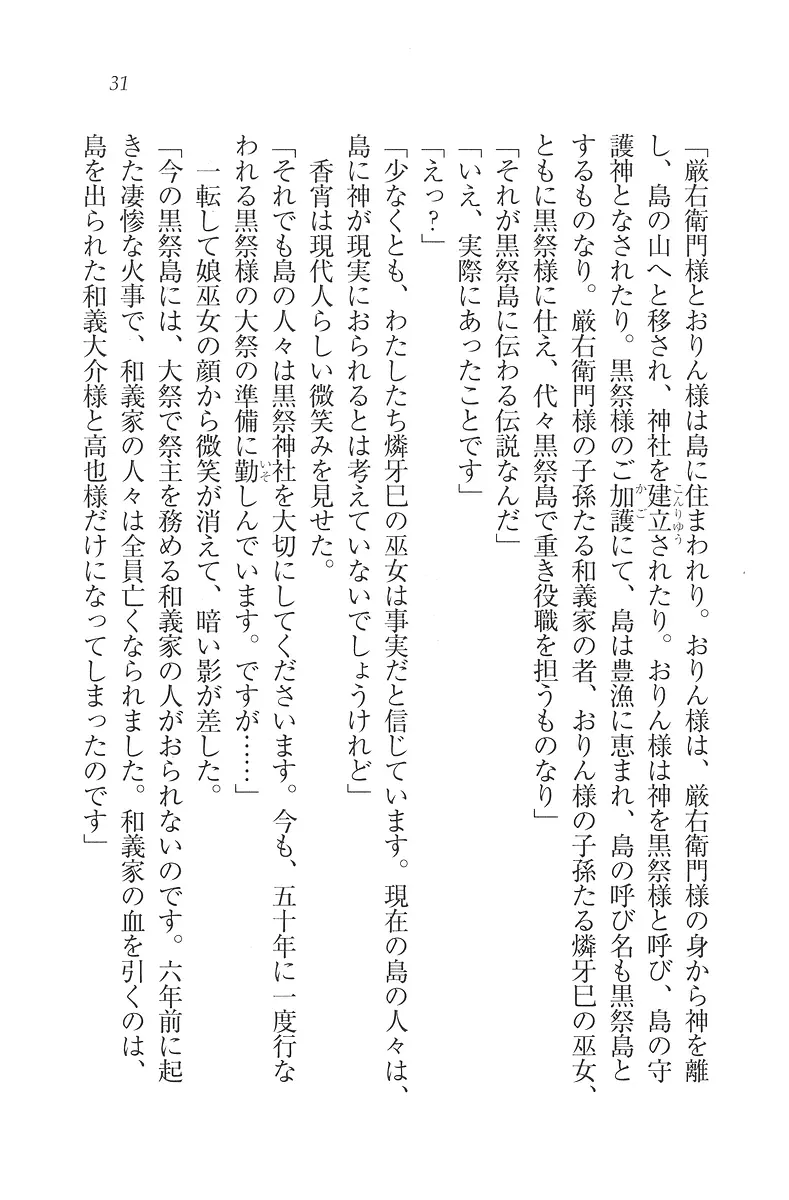 31
「厳右衛門様とおりん様は島に住まわれり。おりん様は、厳右衛門様の身から神を離
し、島の山へと移され、神社を建立されたり。おりん様は神を黒祭様と呼び、島の守
護神となされたり。黒祭様のご加護にて、島は豊漁に恵まれ、島の呼び名も黒祭島と
するものなり。厳右衛門様の子孫たる和義家の者、おりん様の子孫たる燐牙巳の巫女、
ともに黒祭様に仕え、代々黒祭島で重き役職を担うものなり」
「それが黒祭島に伝わる伝説なんだ」
「いえ、実際にあったことです」
「えっ？」
「少なくとも、わたしたち燐牙巳の巫女は事実だと信じています。現在の島の人々は、
島に神が現実におられるとは考えていないでしょうけれど」
香宵は現代人らしい微笑みを見せた。
「それでも島の人々は黒祭神社を大切にしてくださいます。今も、五十年に一度行な
われる黒祭様の大祭の準備に勤しんでいます。ですが……」
一転して娘巫女の顔から微笑が消えて、暗い影が差した。
「今の黒祭島には、大祭で祭主を務める和義家の人がおられないのです。六年前に起
きた凄惨な火事で、和義家の人々は全員亡くなられました。和義家の血を引くのは、
島を出られた和義大介様と高也様だけになってしまったのです」